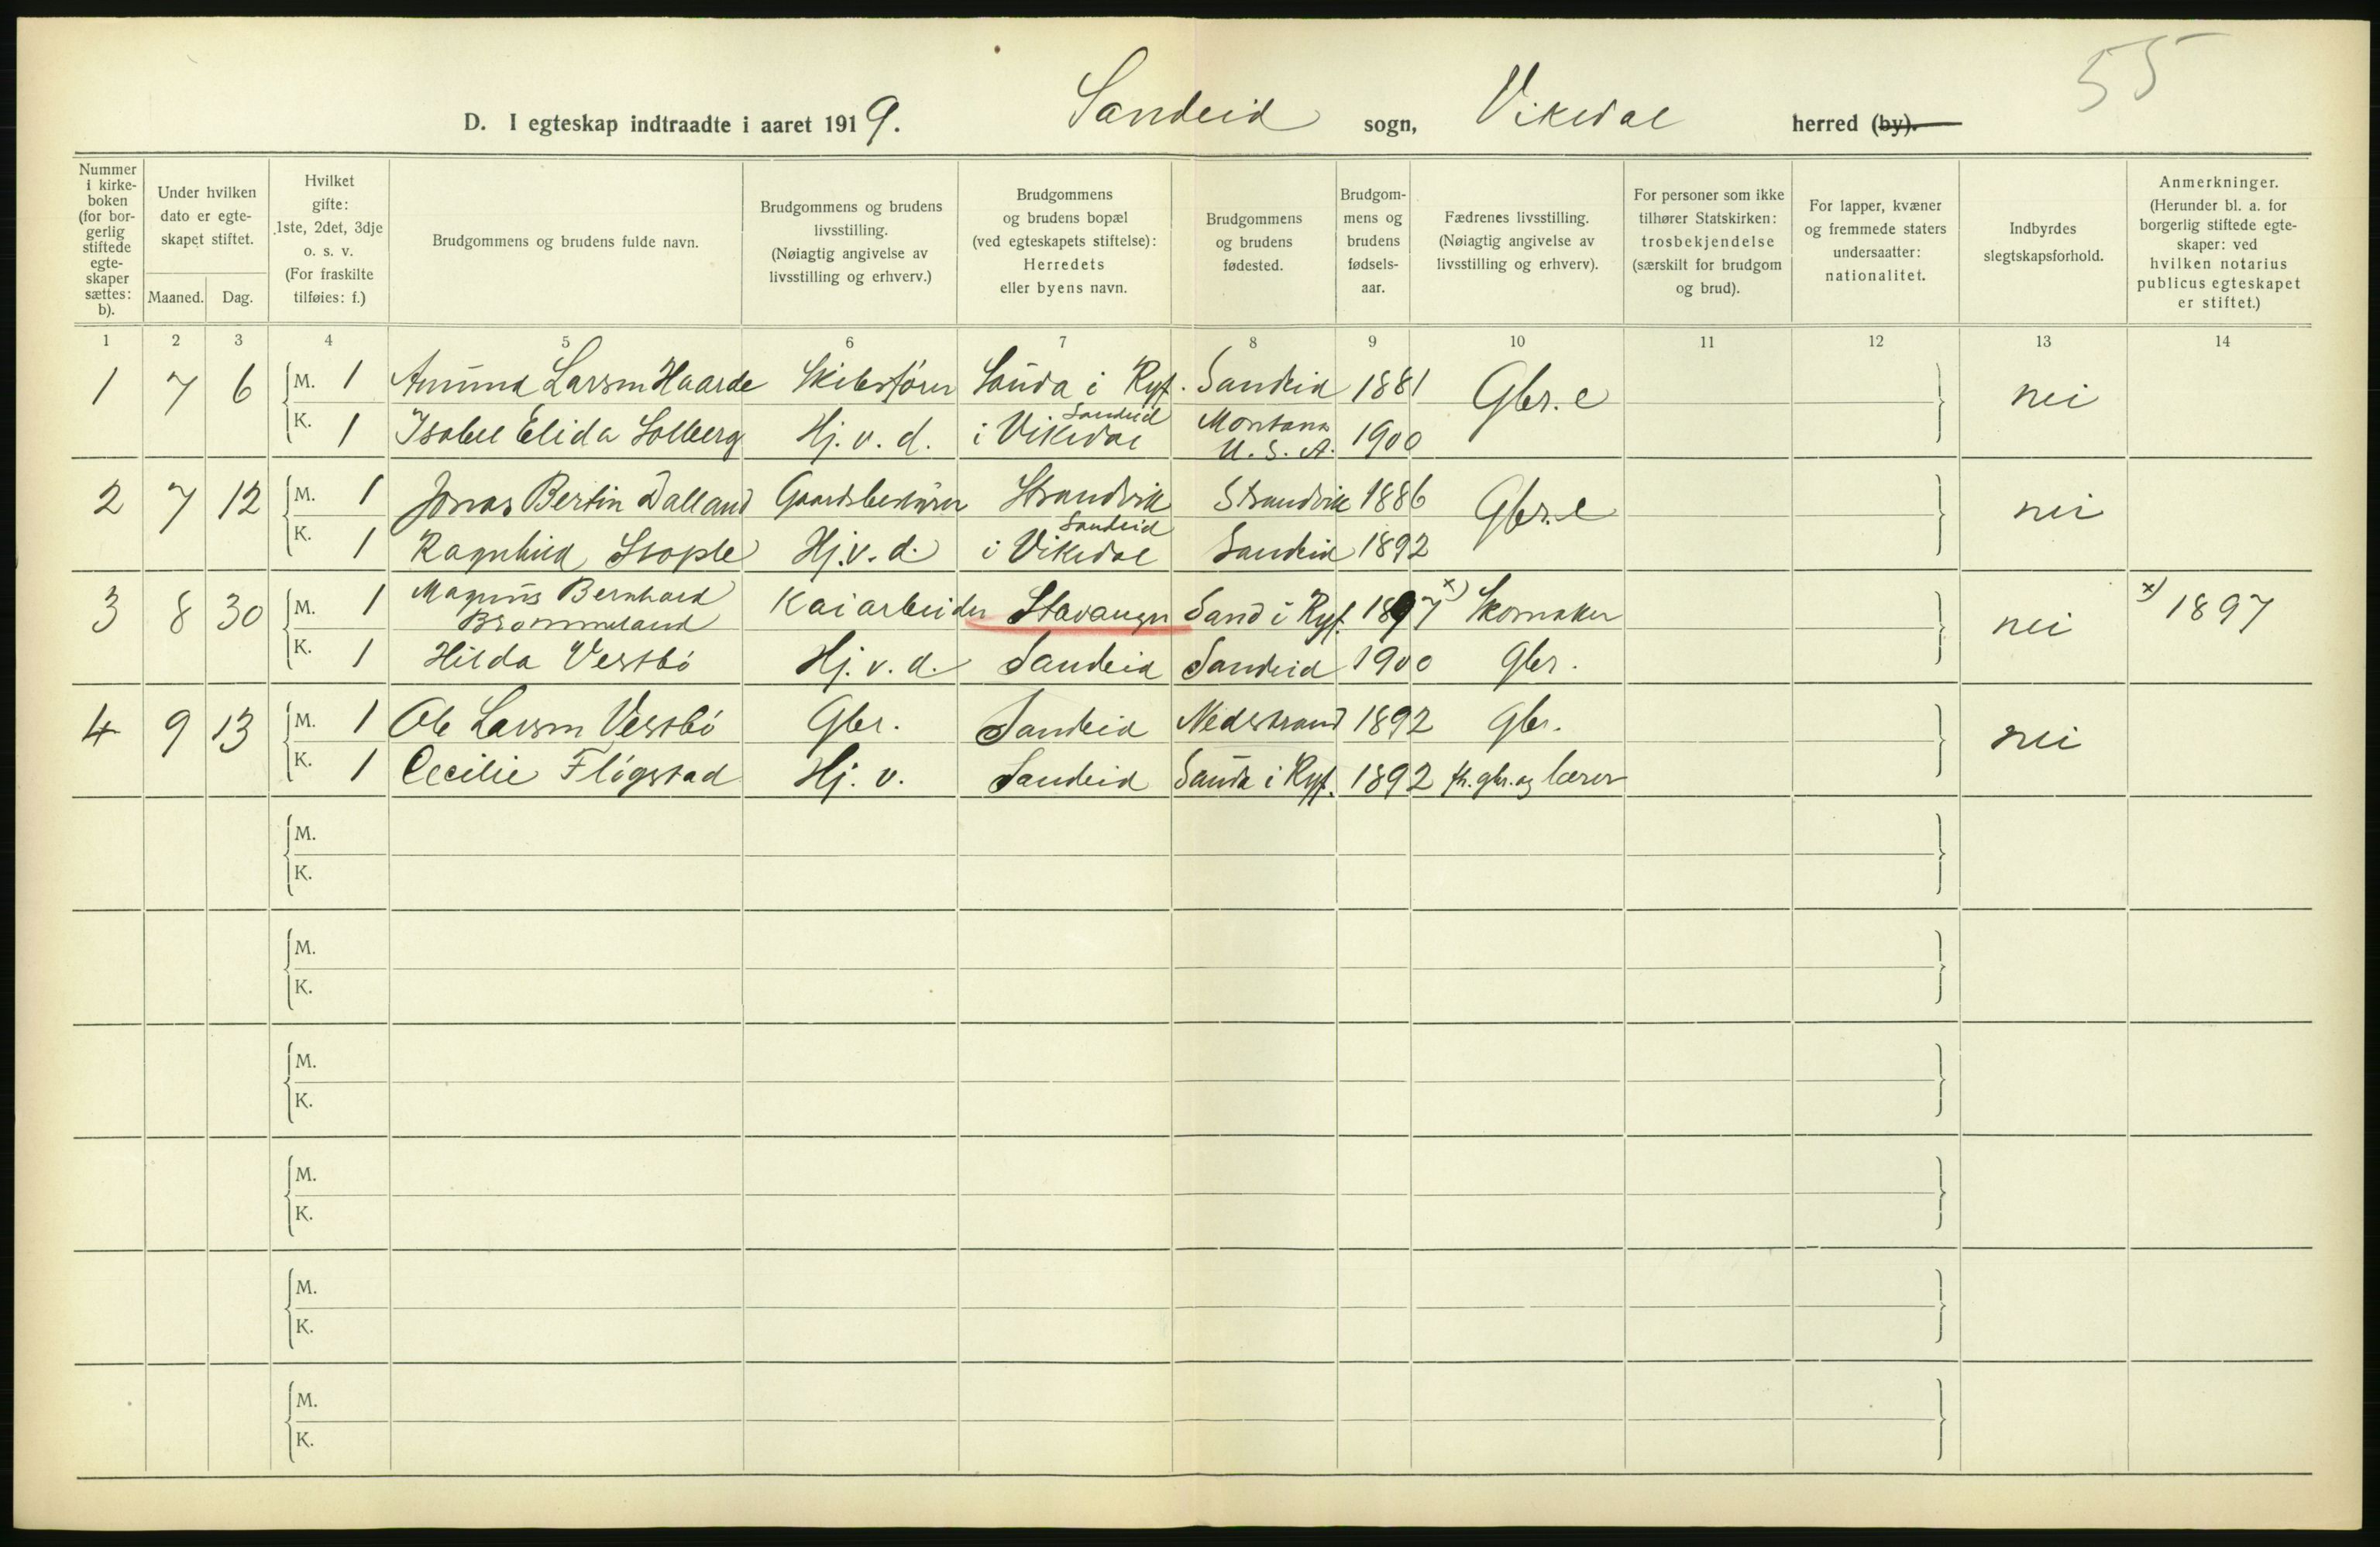 55
D. I egteskap indtraadte i aaret 1919. Sandeid sogn, Vikedal herred (by).
Nummer i kirkeboken (for borgerlig stiftede egteskaper sættes: b).
Under hvilken dato er egteskapet stiftet.
Maaned. Dag.
Hvilket gifte: 1ste, 2det, 3dje o. s. v. (For fraskilte tilføies: f.)
Brudgommens og brudens fulde navn.
Brudgommens og brudens livsstilling. (Nøiagtig angivelse av livsstilling og erhverv.)
Brudgommens og brudens bopæl (ved egteskapets stiftelse): Herredets eller byens navn.
Brudgommens og brudens fødested.
Brudgommens og brudens fødselsaar.
Fædrenes livsstilling. (Nøiagtig angivelse av livsstilling og erhverv).
For personer som ikke tilhører Statskirken: trosbekjendelse (særskilt for brudgom og brud).
For lapper, kvæner og fremmede staters undersaatter: nationalitet.
Indbyrdes slegtskapsforhold.
Anmerkninger. (Herunder bl. a. for borgerlig stiftede egteskaper: ved hvilken notarius publicus egteskapet er stiftet.)
1 2 3 4 5 6 7 8 9 10 11 12 13 14
1 7 6 M. 1 Amund Larsen Haarde Skibsfører Sauda i Ryf. Sandeid 1881 Gbr.e nei
K. 1 Isabel Elida Solberg Hj. v. d. Sandeid i Vikedal Montana U. S. A. 1900
2 7 12 M. 1 Jonas Bertin Dalland Gaardsbestyrer Strandvik Strandvik 1886 Gbr.e nei
K. 1 Ragnhild Stople Hj. v. d. Sandeid i Vikedal Sandeid 1892
3 8 30 M. 1 Magnus Bernhard Brommeland Kaiarbeider Stavanger Sand i Ryf. 1897 x) Skomaker nei x) 1897
K. 1 Hilda Vestbö Hj. v. d. Sandeid Sandeid 1900 Gbr.
4 9 13 M. 1 Ole Larsen Vestbö Gbr. Sandeid Nedstrand 1892 Gbr. nei
K. 1 Cecilie Flögstad Hj. v. Sandeid Sauda i Ryf. 1892 fh. gbr. og lærer
M.
K.
M.
K.
M.
K.
M.
K.
M.
K.
M.
K.